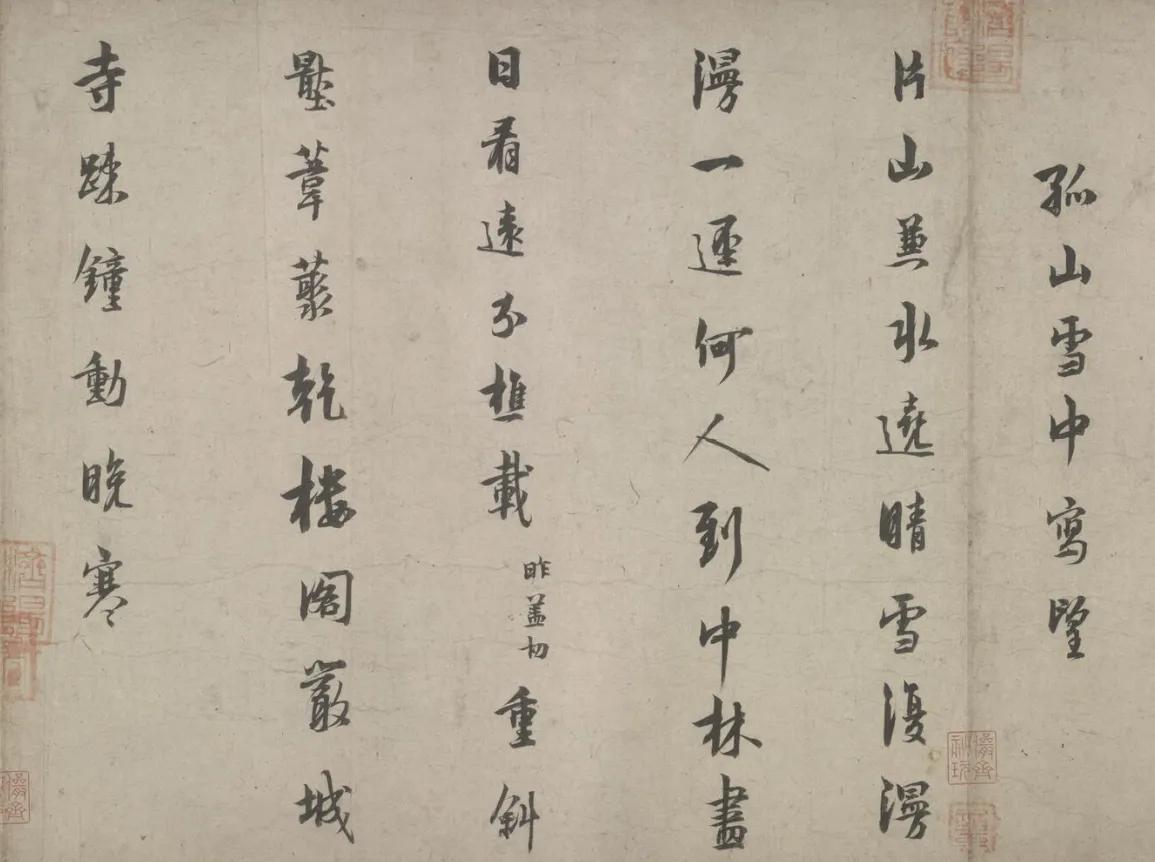 孤山雪中寫望
片山兼水遶晴雪復漫
漫一逕何人到中林盡
日看遠分樵載昨蓋切重斜
壓葦藂乾樓閣嚴城
寺踈鐘動晚寒